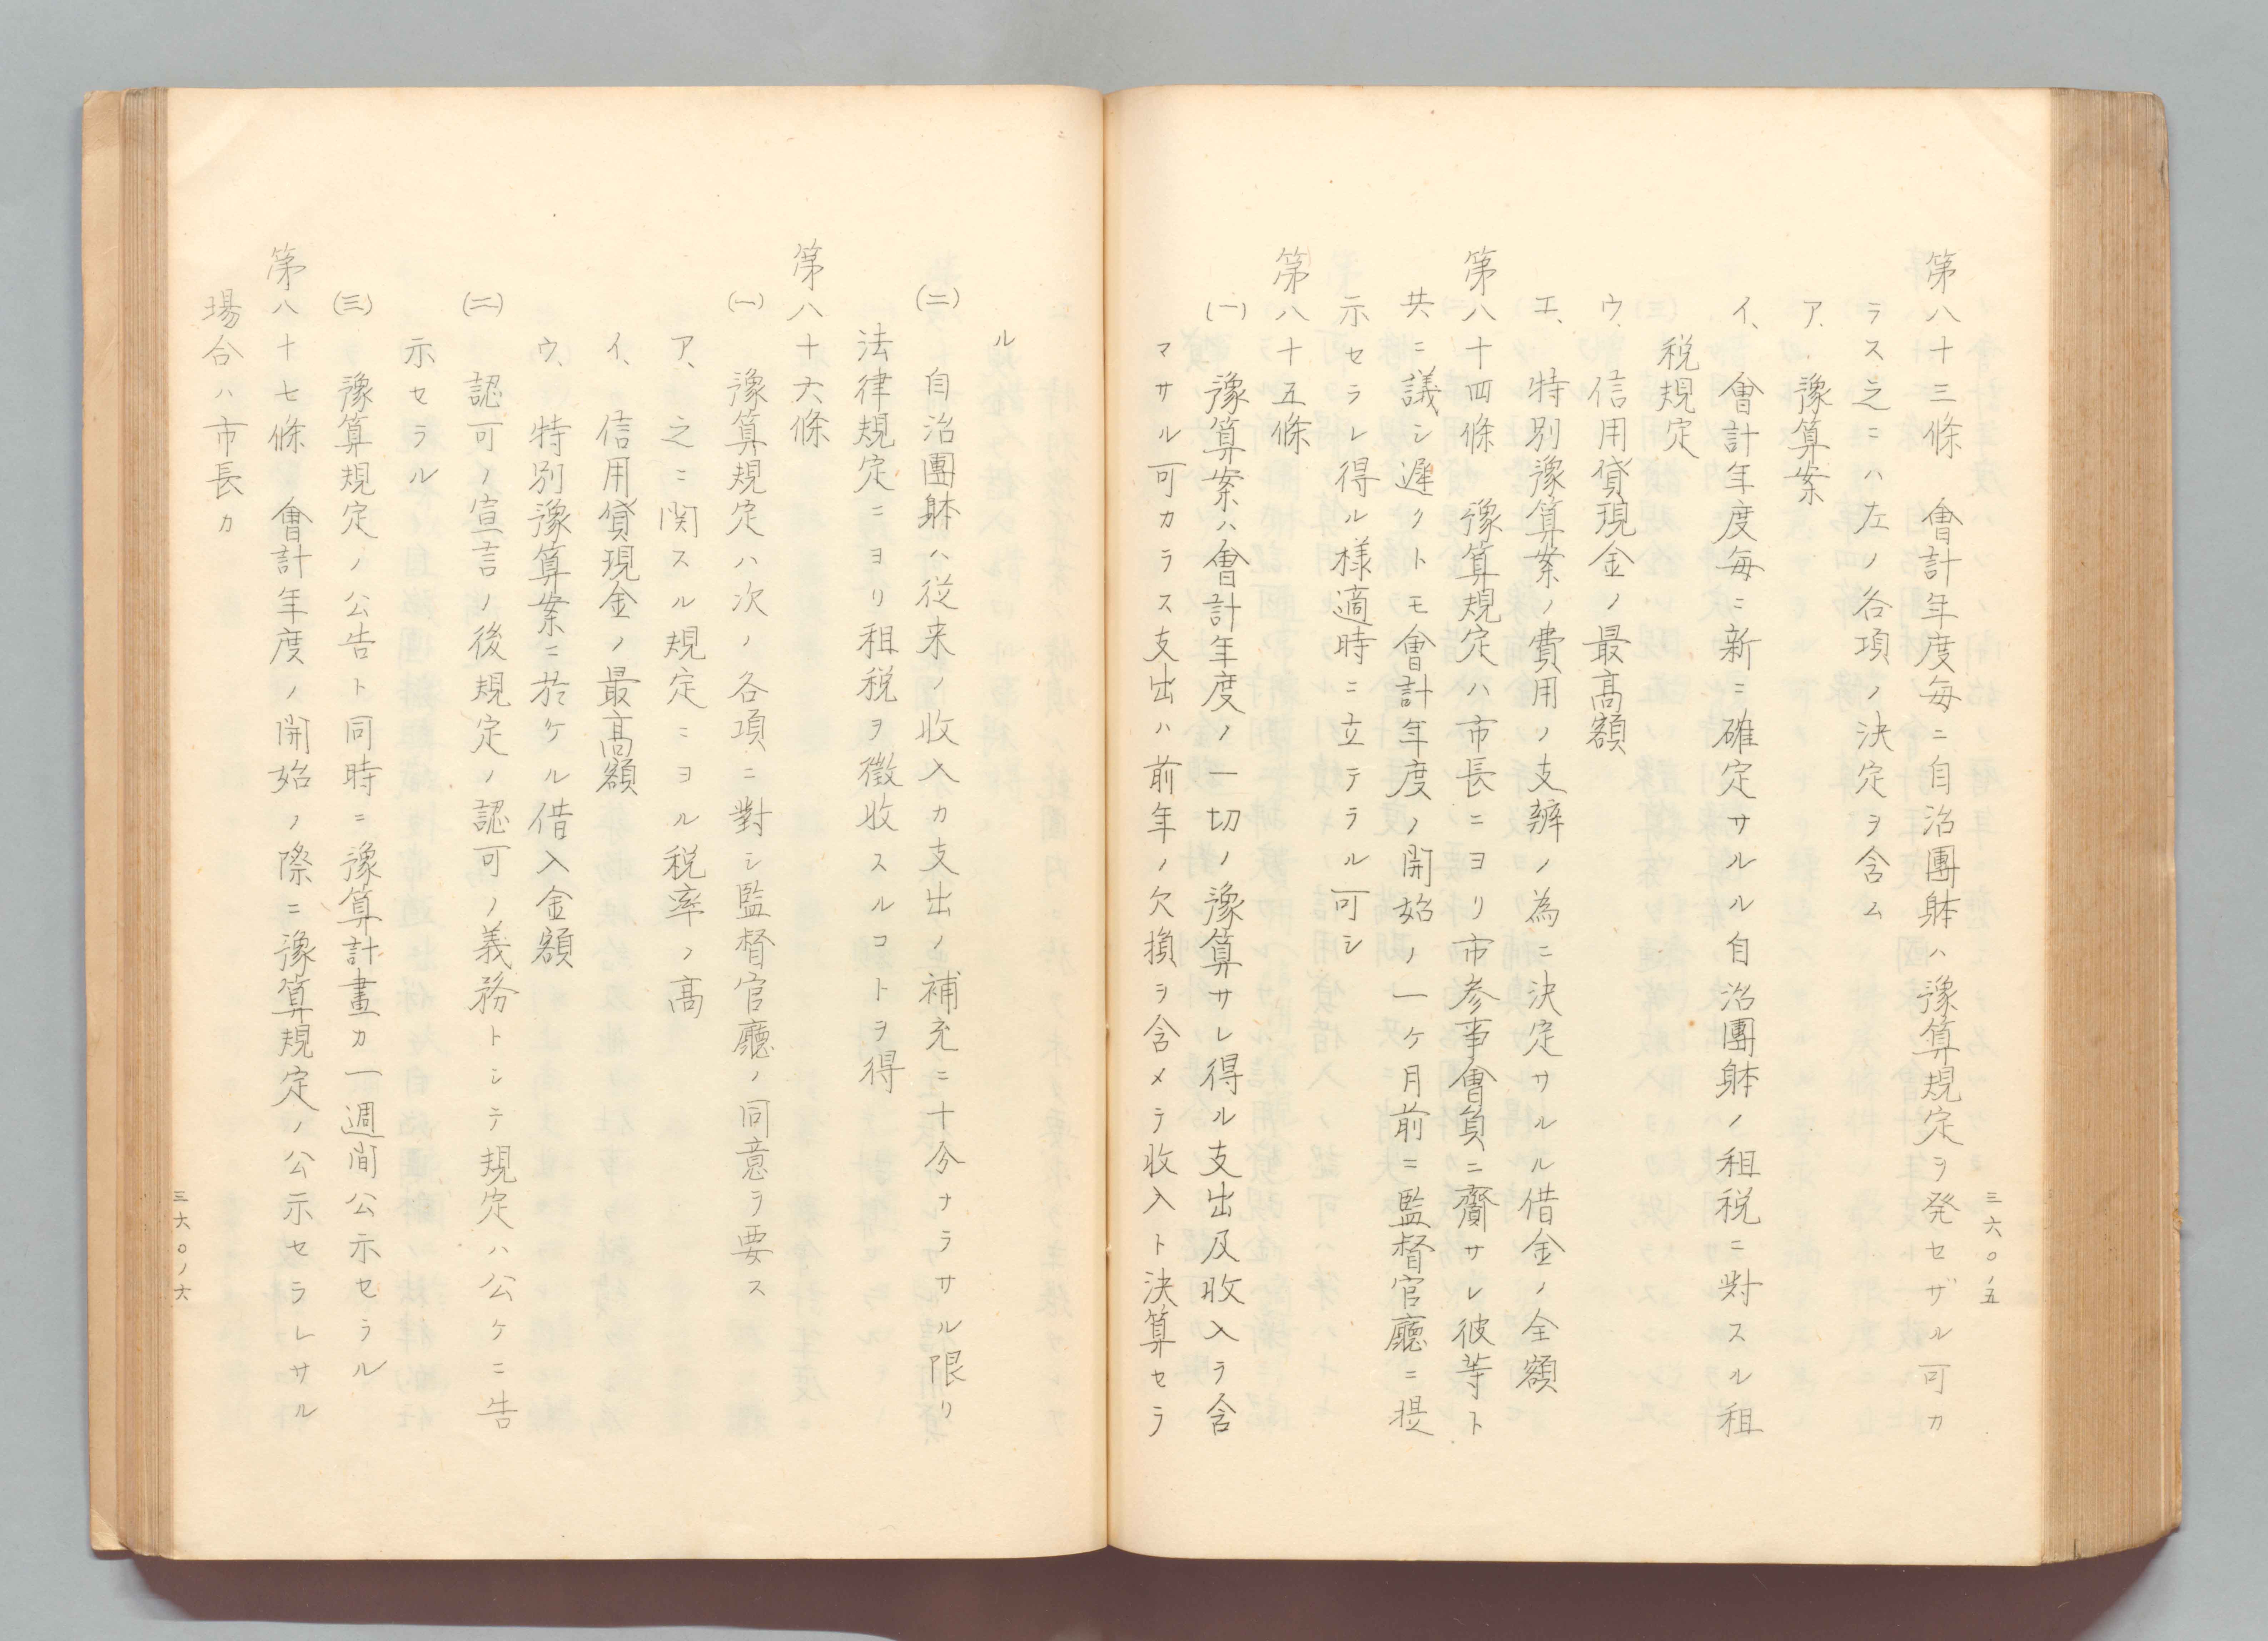 三六〇ノ五
第八十三條　會計年度毎ニ自治團躰ハ豫算規定ヲ発セザル可カ
ラス之ニハ左ノ各項ノ決定ヲ含ム
ア、豫算案
イ、會計年度毎ニ新ニ確定サルル自治團躰ノ租税ニ対スル租
税規定
ウ、信用貸現金ノ最高額
エ、特別豫算案ノ費用ノ支辨ノ為ニ決定サルル借金ノ全額
第八十四條　豫算規定ハ市長ニヨリ市参事會員ニ齎サレ彼等ト
共ニ議シ遅クトモ會計年度ノ開始ノ一ケ月前ニ監督官廳ニ提
示セラレ得ル様適時ニ立テラル可シ
第八十五條
(一)　豫算案ハ會計年度ノ一切ノ豫算サレ得ル支出及收入ヲ含
マサル可カラス支出ハ前年ノ欠損ヲ含メテ收入ト決算セラ
ル
(二)　自治團躰ハ従来ノ收入カ支出ノ補充ニ十分ナラサル限リ
法律規定ニヨリ租税ヲ徴收スルコトヲ得
第八十六條
(一)　豫算規定ハ次ノ各項ニ對シ監督官廳ノ同意ヲ要ス
ア、之ニ関スル規定ニヨル税率ノ高
イ、信用貸現金ノ最高額
ウ、特別豫算案ニ於ケル借入金額
(二)　認可ノ宣言ノ後規定ノ認可ノ義務トシテ規定ハ公ケニ告
示セラル
(三)　豫算規定ノ公告ト同時ニ豫算計畫カ一週間公示セラル
第八十七條　會計年度ノ開始ノ際ニ豫算規定ノ公示セラレサル
場合ハ市長カ
三六〇ノ六